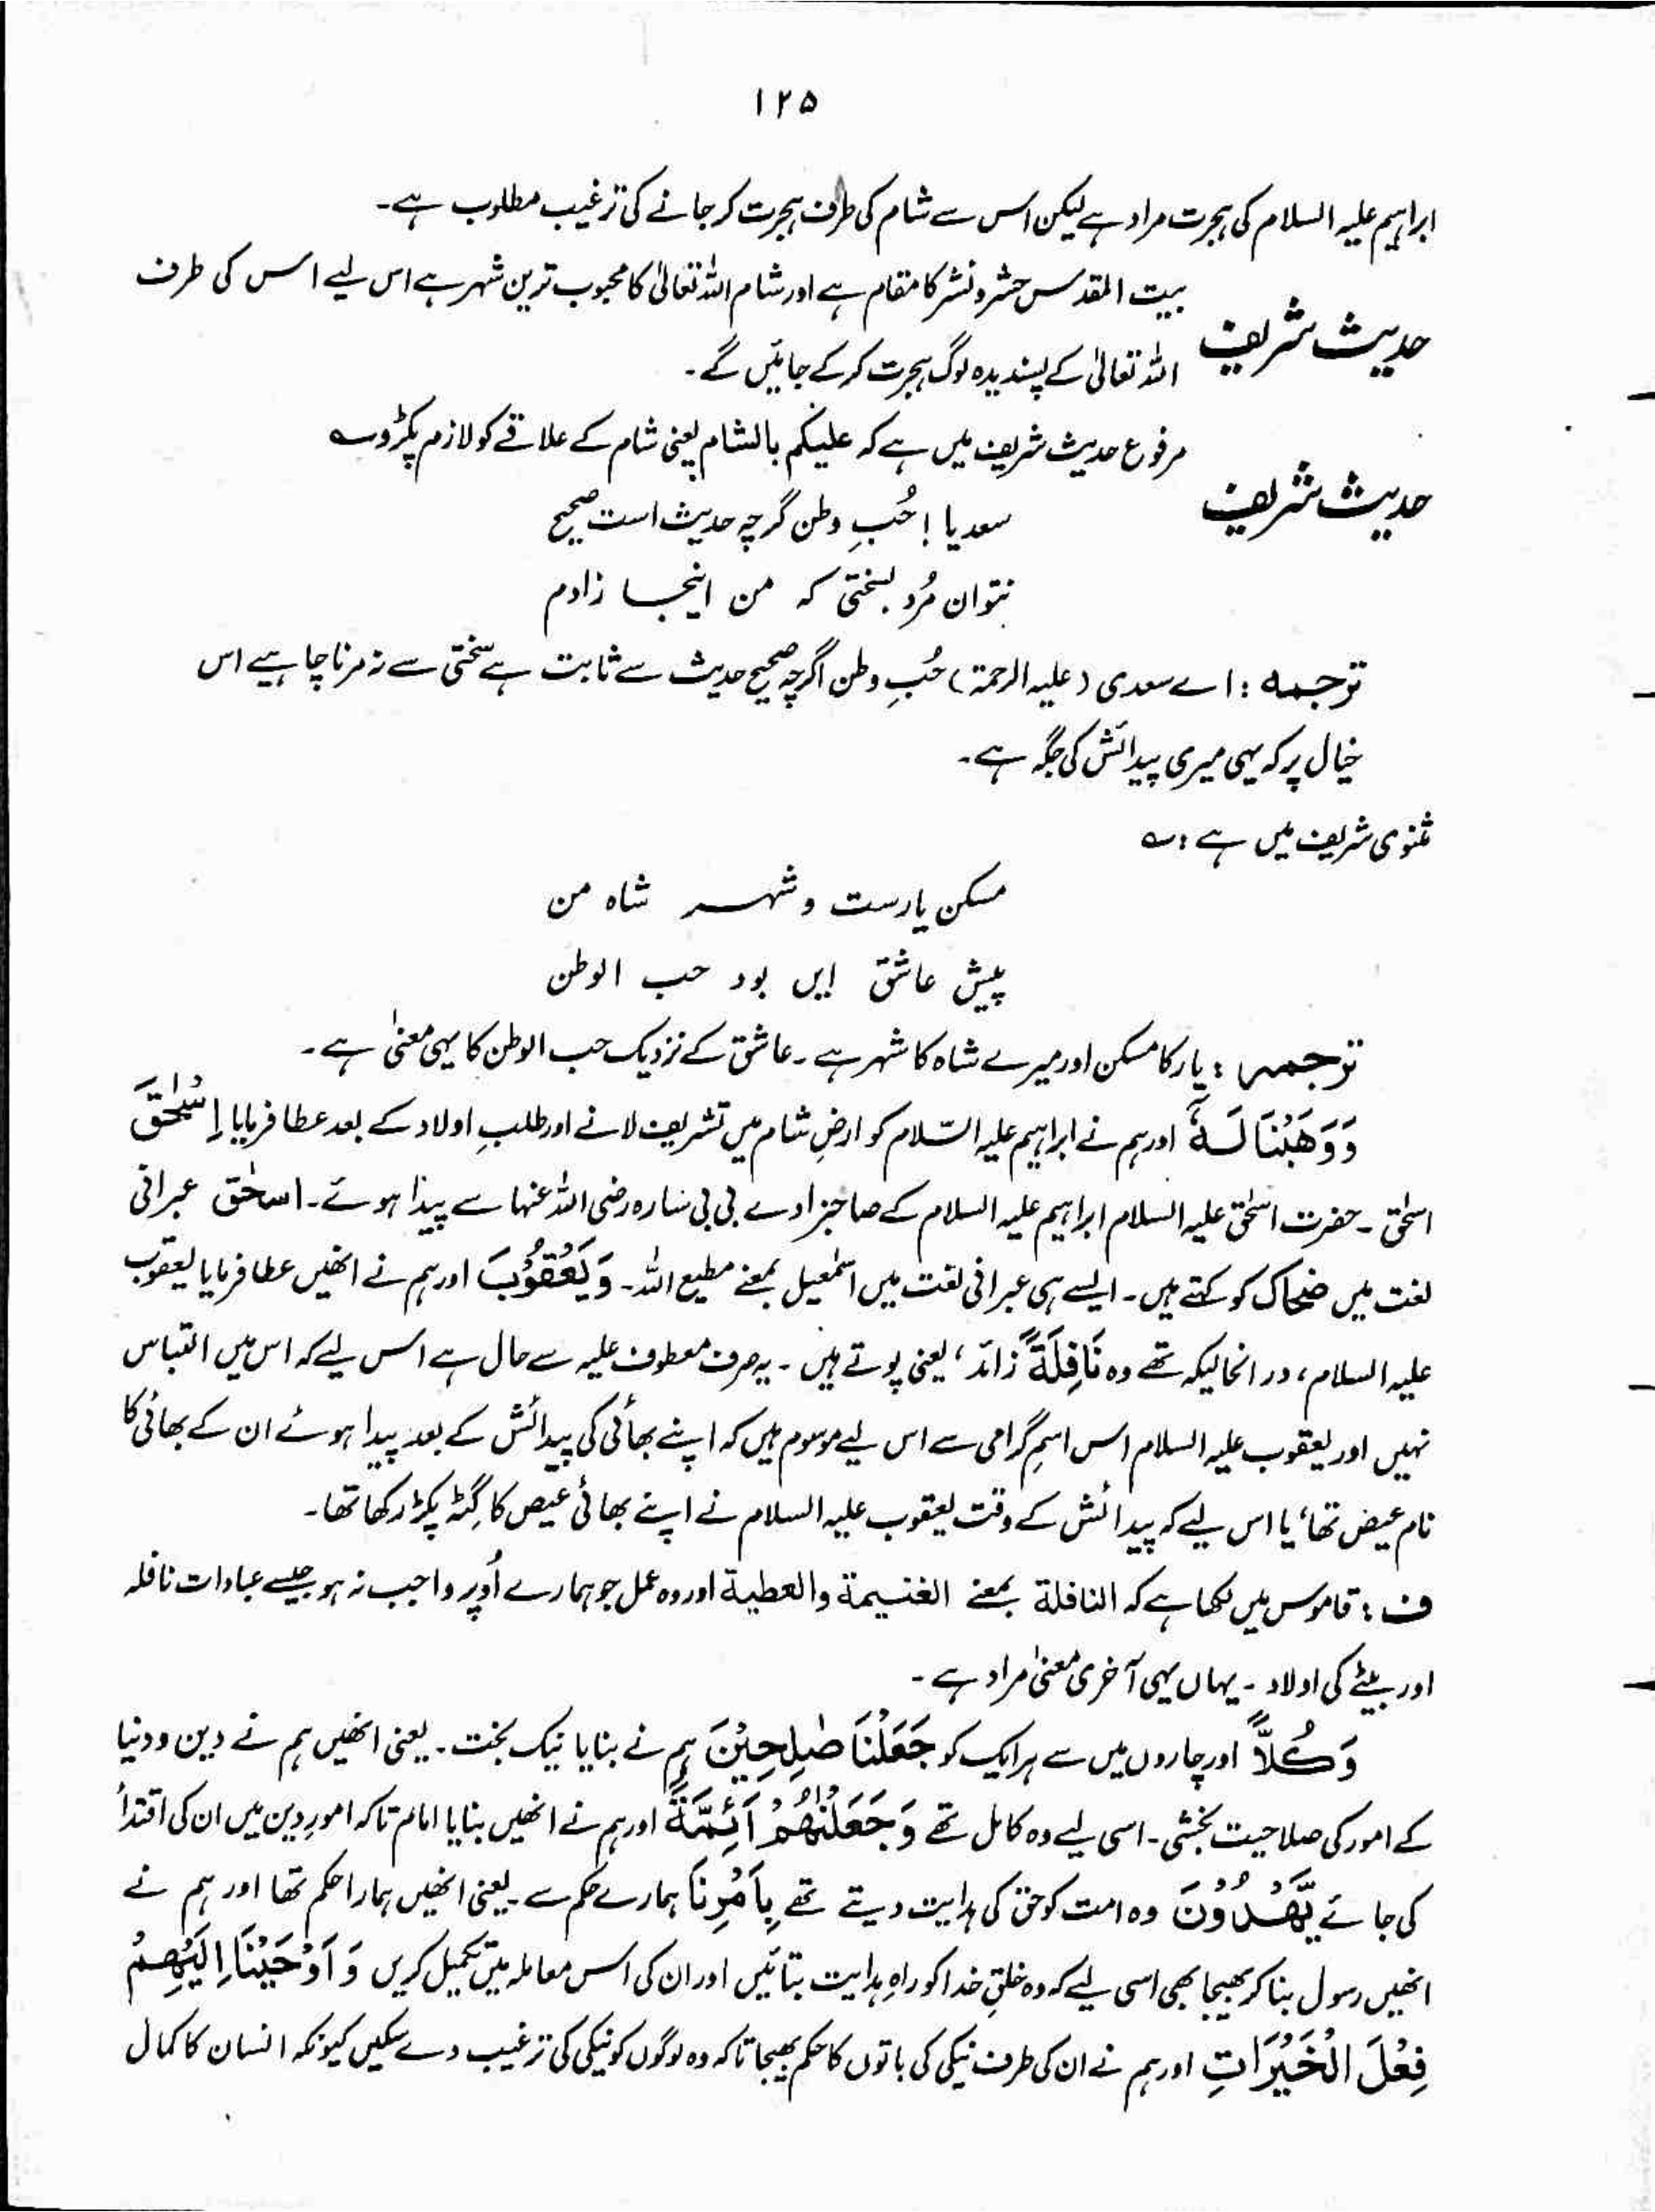 ۱۲۵
ابراہیم علیہ السلام کی ہجرت مراد ہے لیکن اس سے شام کی طرف ہجرت کر جانے کی ترغیب مطلوب ہے۔
حدیث شریف
بیت المقدس حشر و نشر کا مقام ہے اور شام اللہ تعالیٰ کا محبوب ترین شہر ہے اس لیے اس کی طرف
اللہ تعالیٰ کے پسندیدہ لوگ ہجرت کر کے جائیں گے۔
حدیث شریف
مرفوع حدیث شریف میں ہے کہ علیکم بالشام یعنی شام کے علاقے کو لازم پکڑو ؎
سعدیا! حُبِ وطن گرچہ حدیث است صحیح
نتوان مُرد بسختی کہ من اینجا زادم
ترجمہ : اے سعدی (علیہ الرحمۃ) حُبِ وطن اگرچہ صحیح حدیث سے ثابت ہے سختی سے نہ مرنا چاہیے اس
خیال پر کہ یہی میری پیدائش کی جگہ ہے۔
مثنوی شریف میں ہے : ؎
مسکن یارست و شہر شاہ من
پیش عاشق ایں بود حب الوطن
ترجمہ : یار کا مسکن اور میرے شاہ کا شہر ہے۔ عاشق کے نزدیک حب الوطن کا یہی معنیٰ ہے۔
وَوَهَبْنَا لَهٗٓ اور ہم نے ابراہیم علیہ السّلام کو ارضِ شام میں تشریف لانے اور طلبِ اولاد کے بعد عطا فرمایا اِسْحٰقَ
اسحٰق۔ حضرت اسحٰق علیہ السلام ابراہیم علیہ السلام کے صاحبزادے بی بی سارہ رضی اللہ عنہا سے پیدا ہوئے۔ اسحٰق عبرانی
لغت میں ضحاک کو کہتے ہیں۔ ایسے ہی عبرانی لغت میں اسمٰعیل بمعنے مطیع اللہ۔ وَيَعْقُوْبَ اور ہم نے انھیں عطا فرمایا یعقوب
علیہ السلام، درانحالیکہ تھے وہ نَافِلَةً زائد، یعنی پوتے ہیں۔ یہ صرف معطوف علیہ سے حال ہے اس لیے کہ اس میں التباس
نہیں اور یعقوب علیہ السلام اس اسمِ گرامی سے اس لیے موسوم ہیں کہ اپنے بھائی کی پیدائش کے بعد پیدا ہوئے ان کے بھائی کا
نام عیض تھا، یا اس لیے کہ پیدائش کے وقت یعقوب علیہ السلام نے اپنے بھائی عیص کا گِٹہ پکڑ رکھا تھا۔
ف : قاموس میں لکھا ہے کہ النافلۃ بمعنے الغنیمۃ والعطیۃ اور وہ عمل جو ہمارے اُوپر واجب نہ ہو جیسے عبادات نافلہ
اور بیٹے کی اولاد۔ یہاں یہی آخری معنیٰ مراد ہے۔
وَكُلًّا اور چاروں میں سے ہر ایک کو جَعَلْنَا صٰلِحِيْنَ ہم نے بنایا نیک بخت۔ یعنی انھیں ہم نے دین و دنیا
کے امور کی صلاحیت بخشی۔ اسی لیے وہ کامل تھے وَجَعَلْنٰهُمْ اَئِمَّةً اور ہم نے انھیں بنایا امام تاکہ امورِ دین میں ان کی اقتدأ
کی جائے يَّهْدُوْنَ وہ امت کو حق کی ہدایت دیتے تھے بِاَمْرِنَا ہمارے حکم سے۔ یعنی انھیں ہمارا حکم تھا اور ہم نے
انھیں رسول بنا کر بھیجا بھی اسی لیے کہ وہ خلقِ خدا کو راہِ ہدایت بتائیں اور ان کی اس معاملہ میں تکمیل کریں وَاَوْحَيْنَا اِلَيْهِمْ
فِعْلَ الْخَيْرَاتِ اور ہم نے ان کی طرف نیکی کی باتوں کا حکم بھیجا تاکہ وہ لوگوں کو نیکی کی ترغیب دے سکیں کیونکہ انسان کا کمال